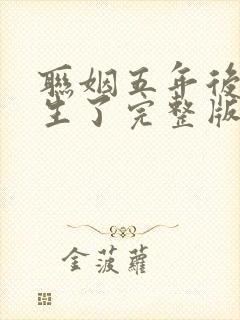 聯姻五年後
生了完整版
金菠蘿